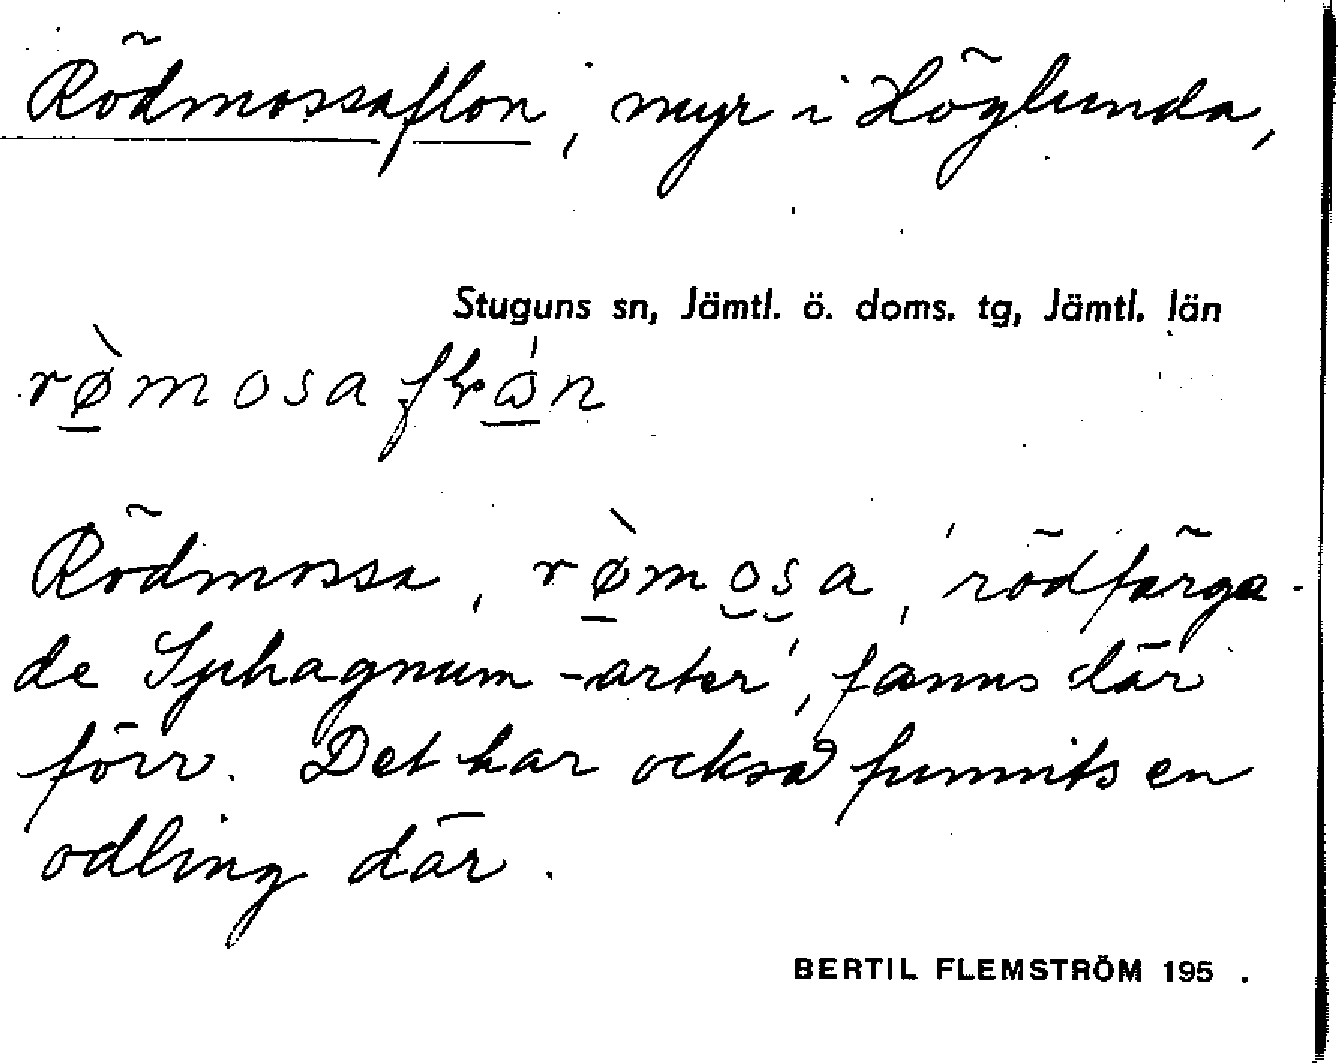 Rödmossaflon, myr i Höglunda,
Stuguns sn, Jämtl. ö. doms. tg, Jämtl. län
Rödmossa, rø̀mosa, 'rödfärga-
de Sphagnum-arter', fanns där
förr. Det har också funnits en
odling där.
BERTIL FLEMSTRÖM 195 .